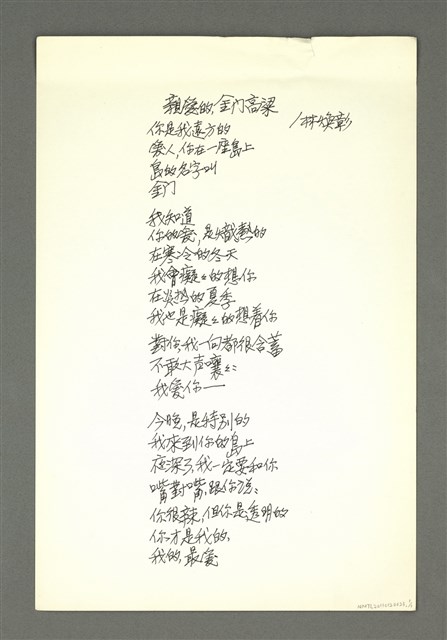 親愛的,金门高粱
/林煥彰
你是我遠方的
愛人,你在一座島上
島的名字叫
金门
我知道
你的愛,是熾熱的
在寒冷的冬天
我會癡々的想你
在炎热的夏季
我也是癡々的想着你
對你,我一向都很含蓄
不敢大声嚷々:
我爱你——
今晚,是特別的
我來到你的島上
夜深了,我一定要和你
嘴對嘴,跟你说:
你很辣,但你是透明的
你才是我的,
我的,最愛